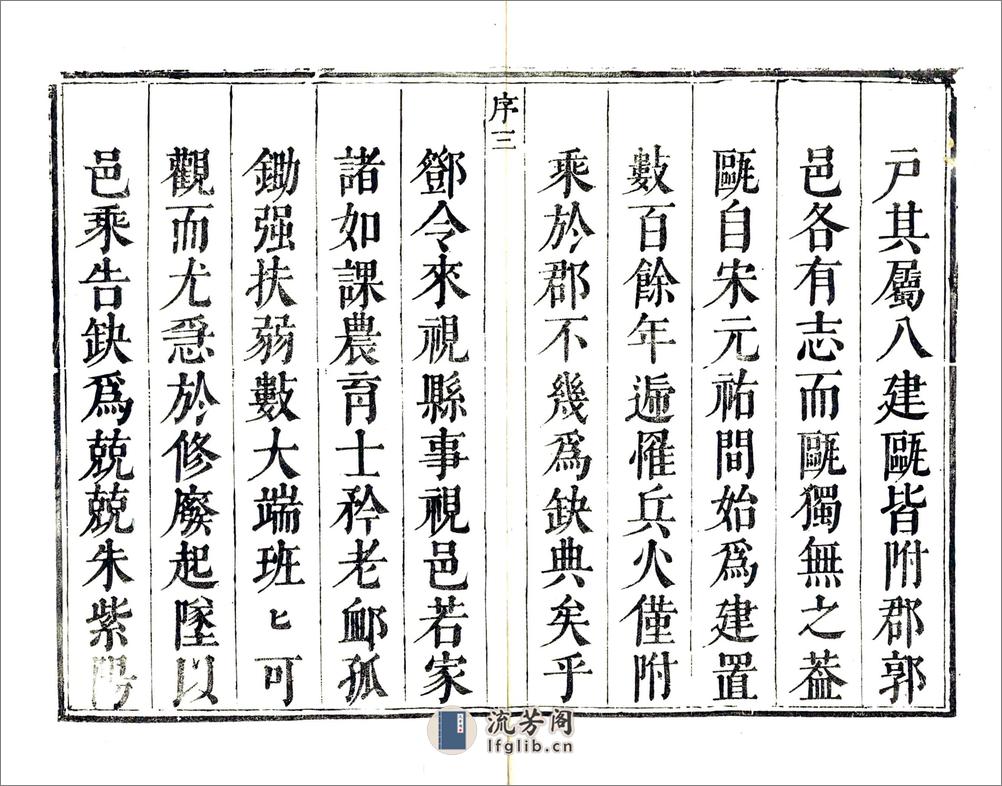 戸其屬八建甌皆附郡郭
邑各有志而甌獨無之葢
甌自宋元祐間始爲建置
數百餘年遍罹兵火僅附
乘於郡不幾爲缺典矣乎
序三
鄧令來視縣事視邑若家
諸如課農育士矜老䘏孤
鋤强扶弱數大端班匕可
觀而尤急於修廢起墜以
邑乘告缺爲兢兢朱紫陽
流芳阁
lfglib.cn